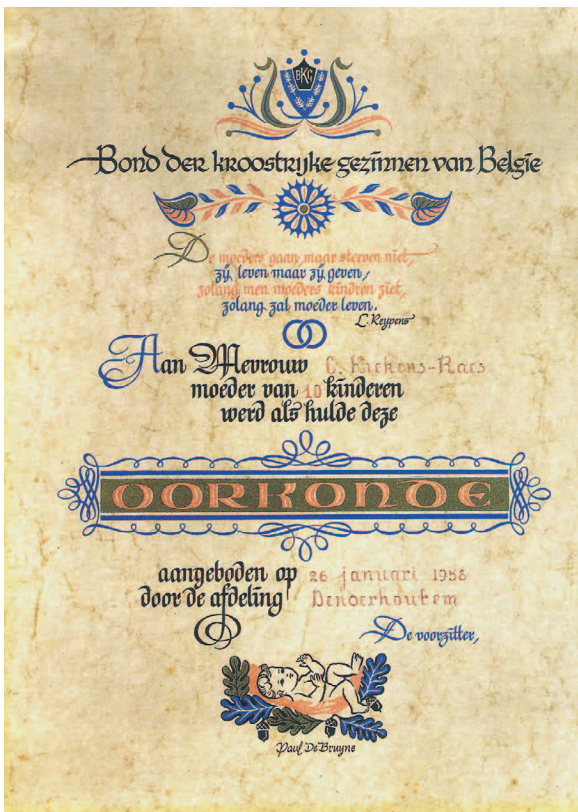 BKG
Bond der kroostrijke gezinnen van Belgie
De moeders gaan maar sterven niet,
zij leven maar zij geven,
zolang men moeders kindren ziet,
zolang zal moeder leven.
L. Reypens
Aan Mevrouw C. Kiekens-Raes
moeder van 10 kinderen
werd als hulde deze
OORKONDE
aangeboden op 26 januari 1958
door de afdeling Denderhoutem
De voorzitter,
Paul De Bruyne